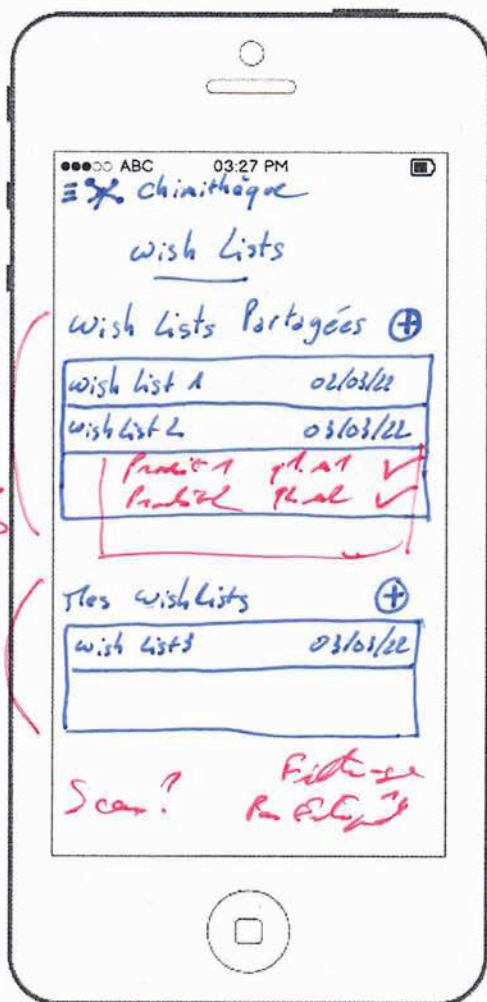 ABC 03:27 PM
chimithèque
wish Lists
wish Lists Partagées +
wish List 1 02/03/22
wish List 2 03/03/22
Produit 1 ✓
Produit 2 ✓
Mes wishlists +
wish List 3 03/03/22
Scan?
Filtrage
Par